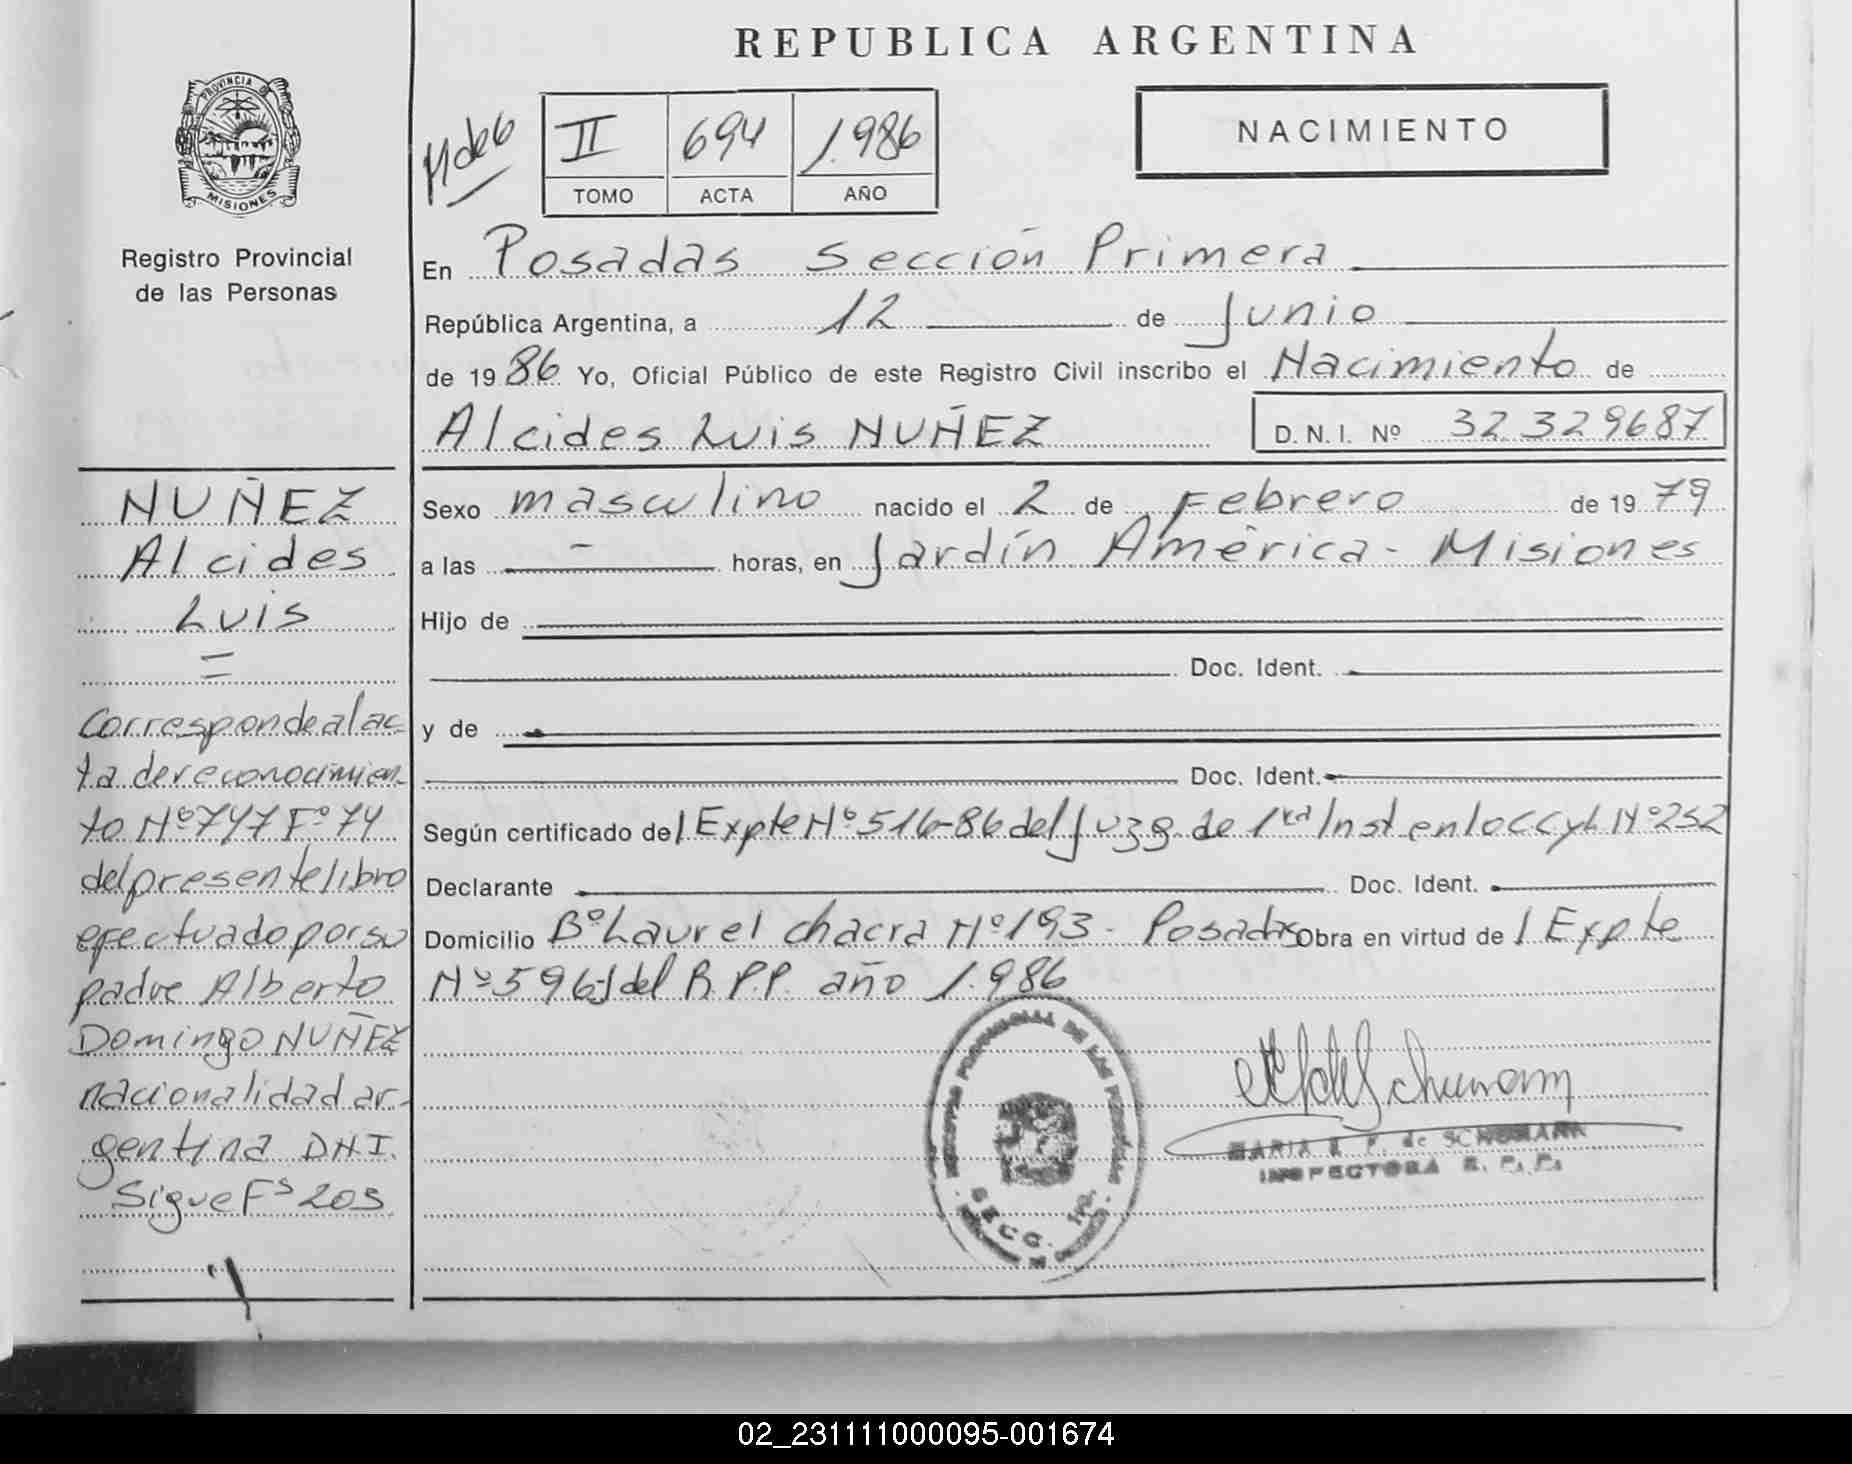 REPUBLICA ARGENTINA
PROVINCIA
MISIONES
Registro Provincial
de las Personas
II 694 1.986
TOMO ACTA AÑO
NACIMIENTO
En Posadas Sección Primera
República Argentina, a 12 de Junio
de 1986 Yo, Oficial Público de este Registro Civil inscribo el Nacimiento de
Alcides Luis NUÑEZ D. N. I. Nº 32.329687
NUÑEZ
Alcides
Luis
=
Corresponde al ac
ta de reconocimien
to Nº 747 Fº 74
del presente libro
efectuado por su
padre Alberto
Domingo NUÑEZ
nacionalidad ar-
gentina DNI.
Sigue Fs 203
Sexo masculino nacido el 2 de Febrero de 1979
a las - horas, en Jardín América - Misiones
Hijo de
Doc. Ident.
y de
Doc. Ident.
Según certificado del Expte Nº 516-86 del Juzg. de 1ra Inst en lo CCyL Nº 252
Declarante Doc. Ident.
Domicilio Bº Laurel chacra Nº 193 - Posadas Obra en virtud del Expte
Nº 596-J del R.P.P. año 1.986
REGISTRO PROVINCIAL DE LAS PERSONAS
SECC. 1ra.
MARIA E. F. de SCHUMANN
INSPECTORA R. P. P.
02_231111000095-001674